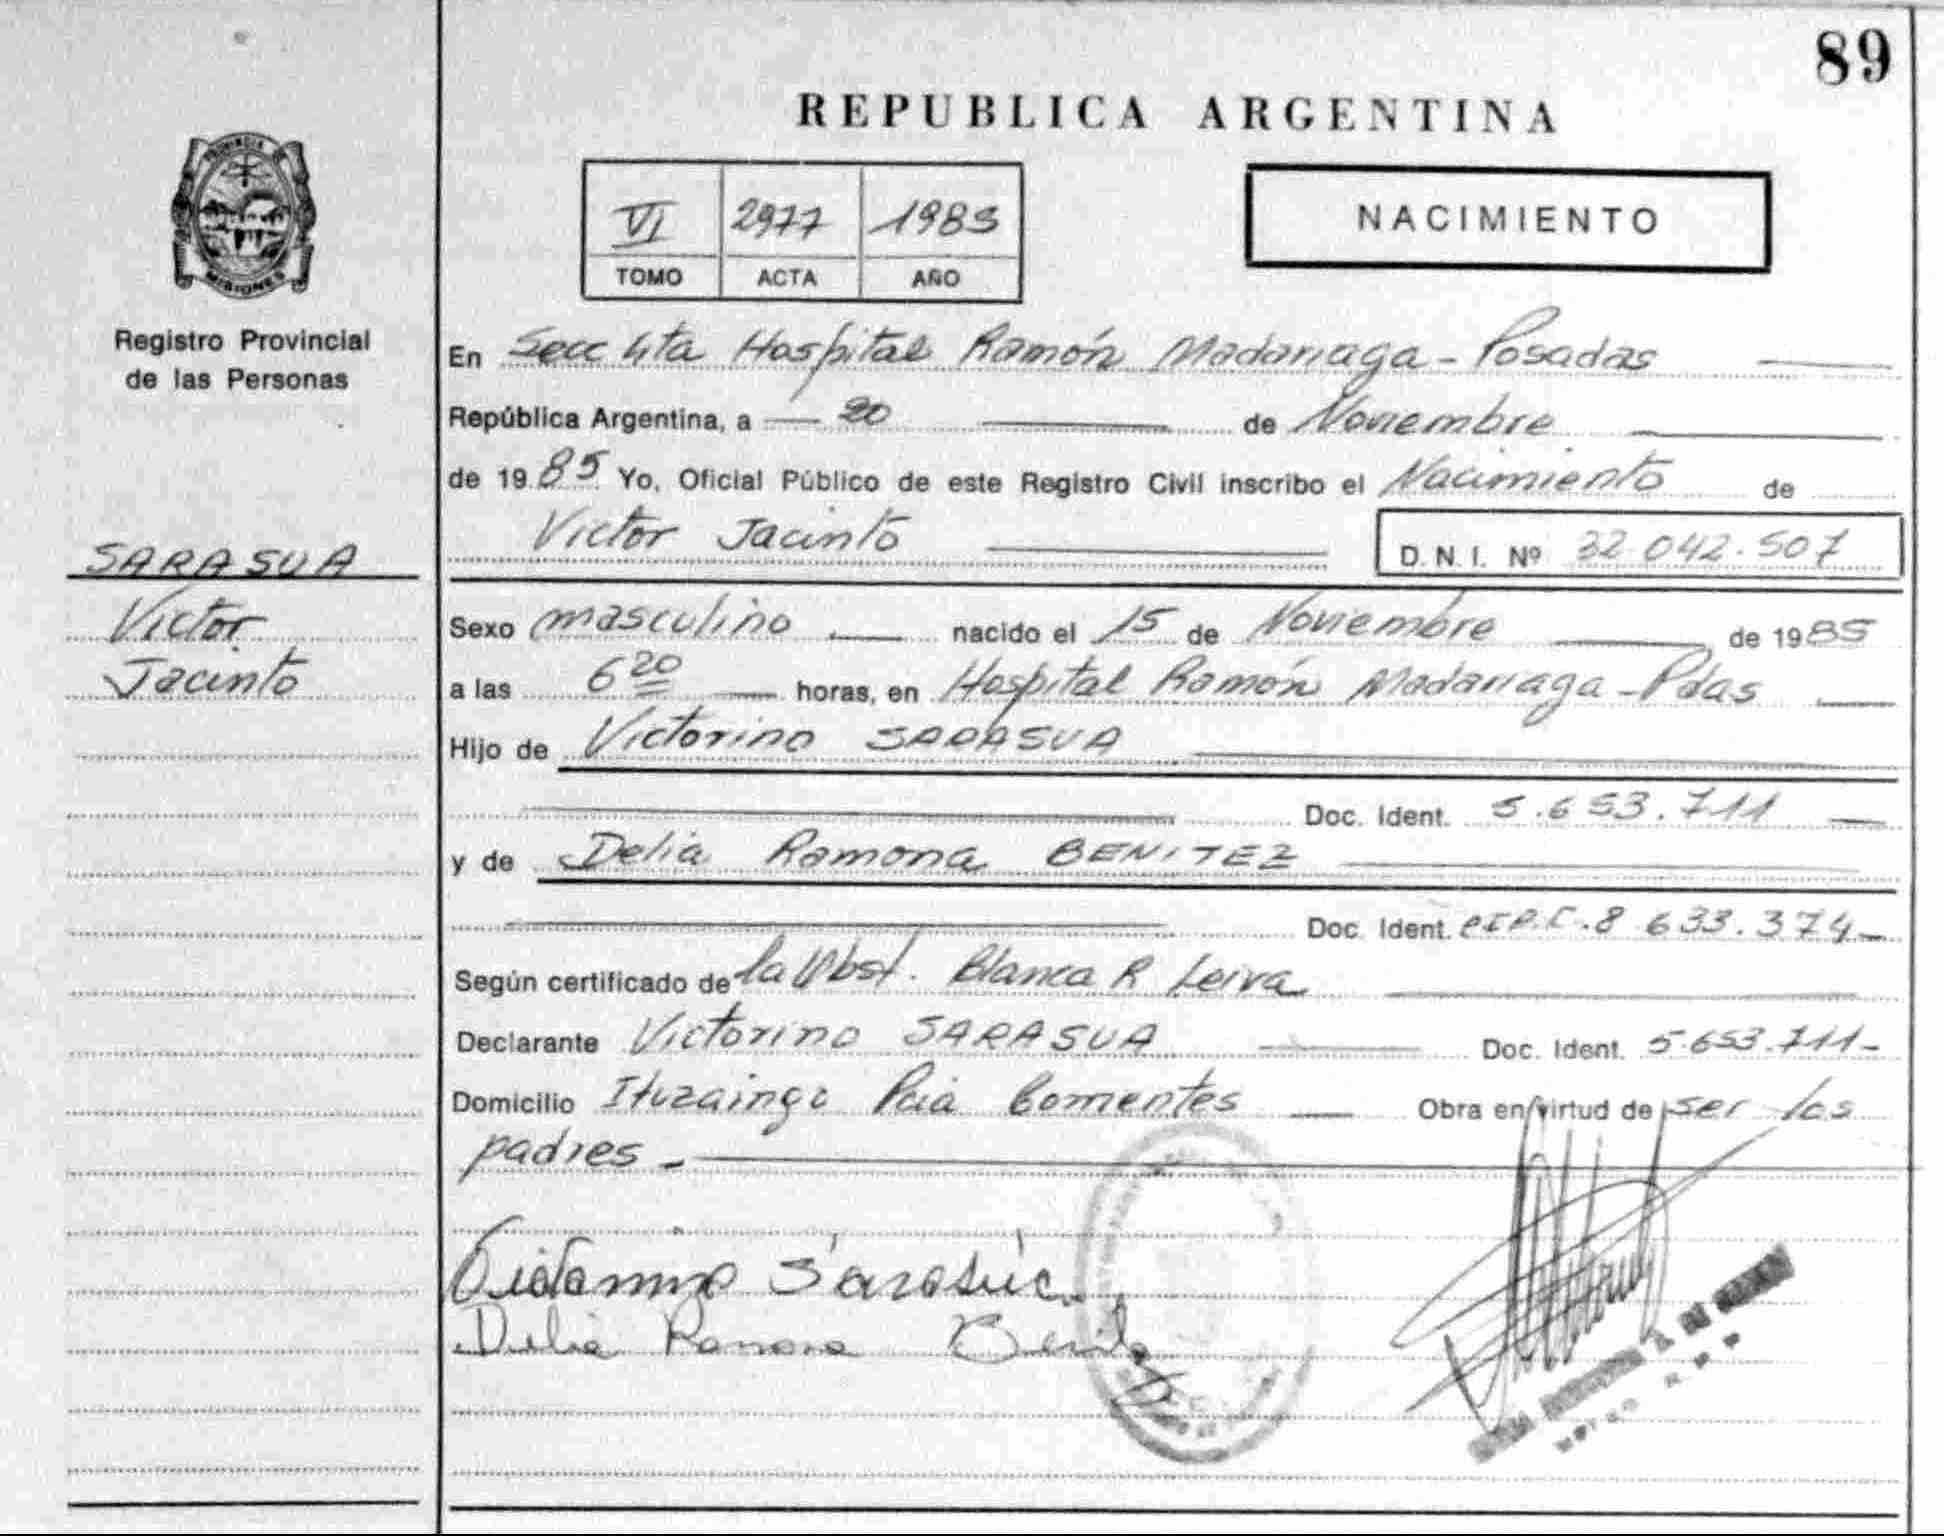 89
REPUBLICA ARGENTINA
VI 2977 1985
TOMO ACTA AÑO
NACIMIENTO
PROVINCIA DE
MISIONES
Registro Provincial
de las Personas
SARASUA
Victor
Jacinto
En Secc 4ta Hospital Ramón Madariaga - Posadas
República Argentina, a 20 de Noviembre
de 1985 Yo, Oficial Público de este Registro Civil inscribo el Nacimiento de
Victor Jacinto D.N.I. Nº 32.042.507
Sexo masculino nacido el 15 de Noviembre de 1985
a las 6 20 horas, en Hospital Ramón Madariaga - Pdas
Hijo de Victorino SARASUA
Doc. Ident. 5.653.711
y de Delia Ramona BENITEZ
Doc. Ident. 8.633.374 -
Según certificado de la Obst. Blanca R Leiva
Declarante Victorino SARASUA Doc. Ident. 5.653.711 -
Domicilio Ituzaingo Pcia Corrientes Obra en virtud de ser los
padres -
Victorino Sarasúa
Delia Ramona Benitez